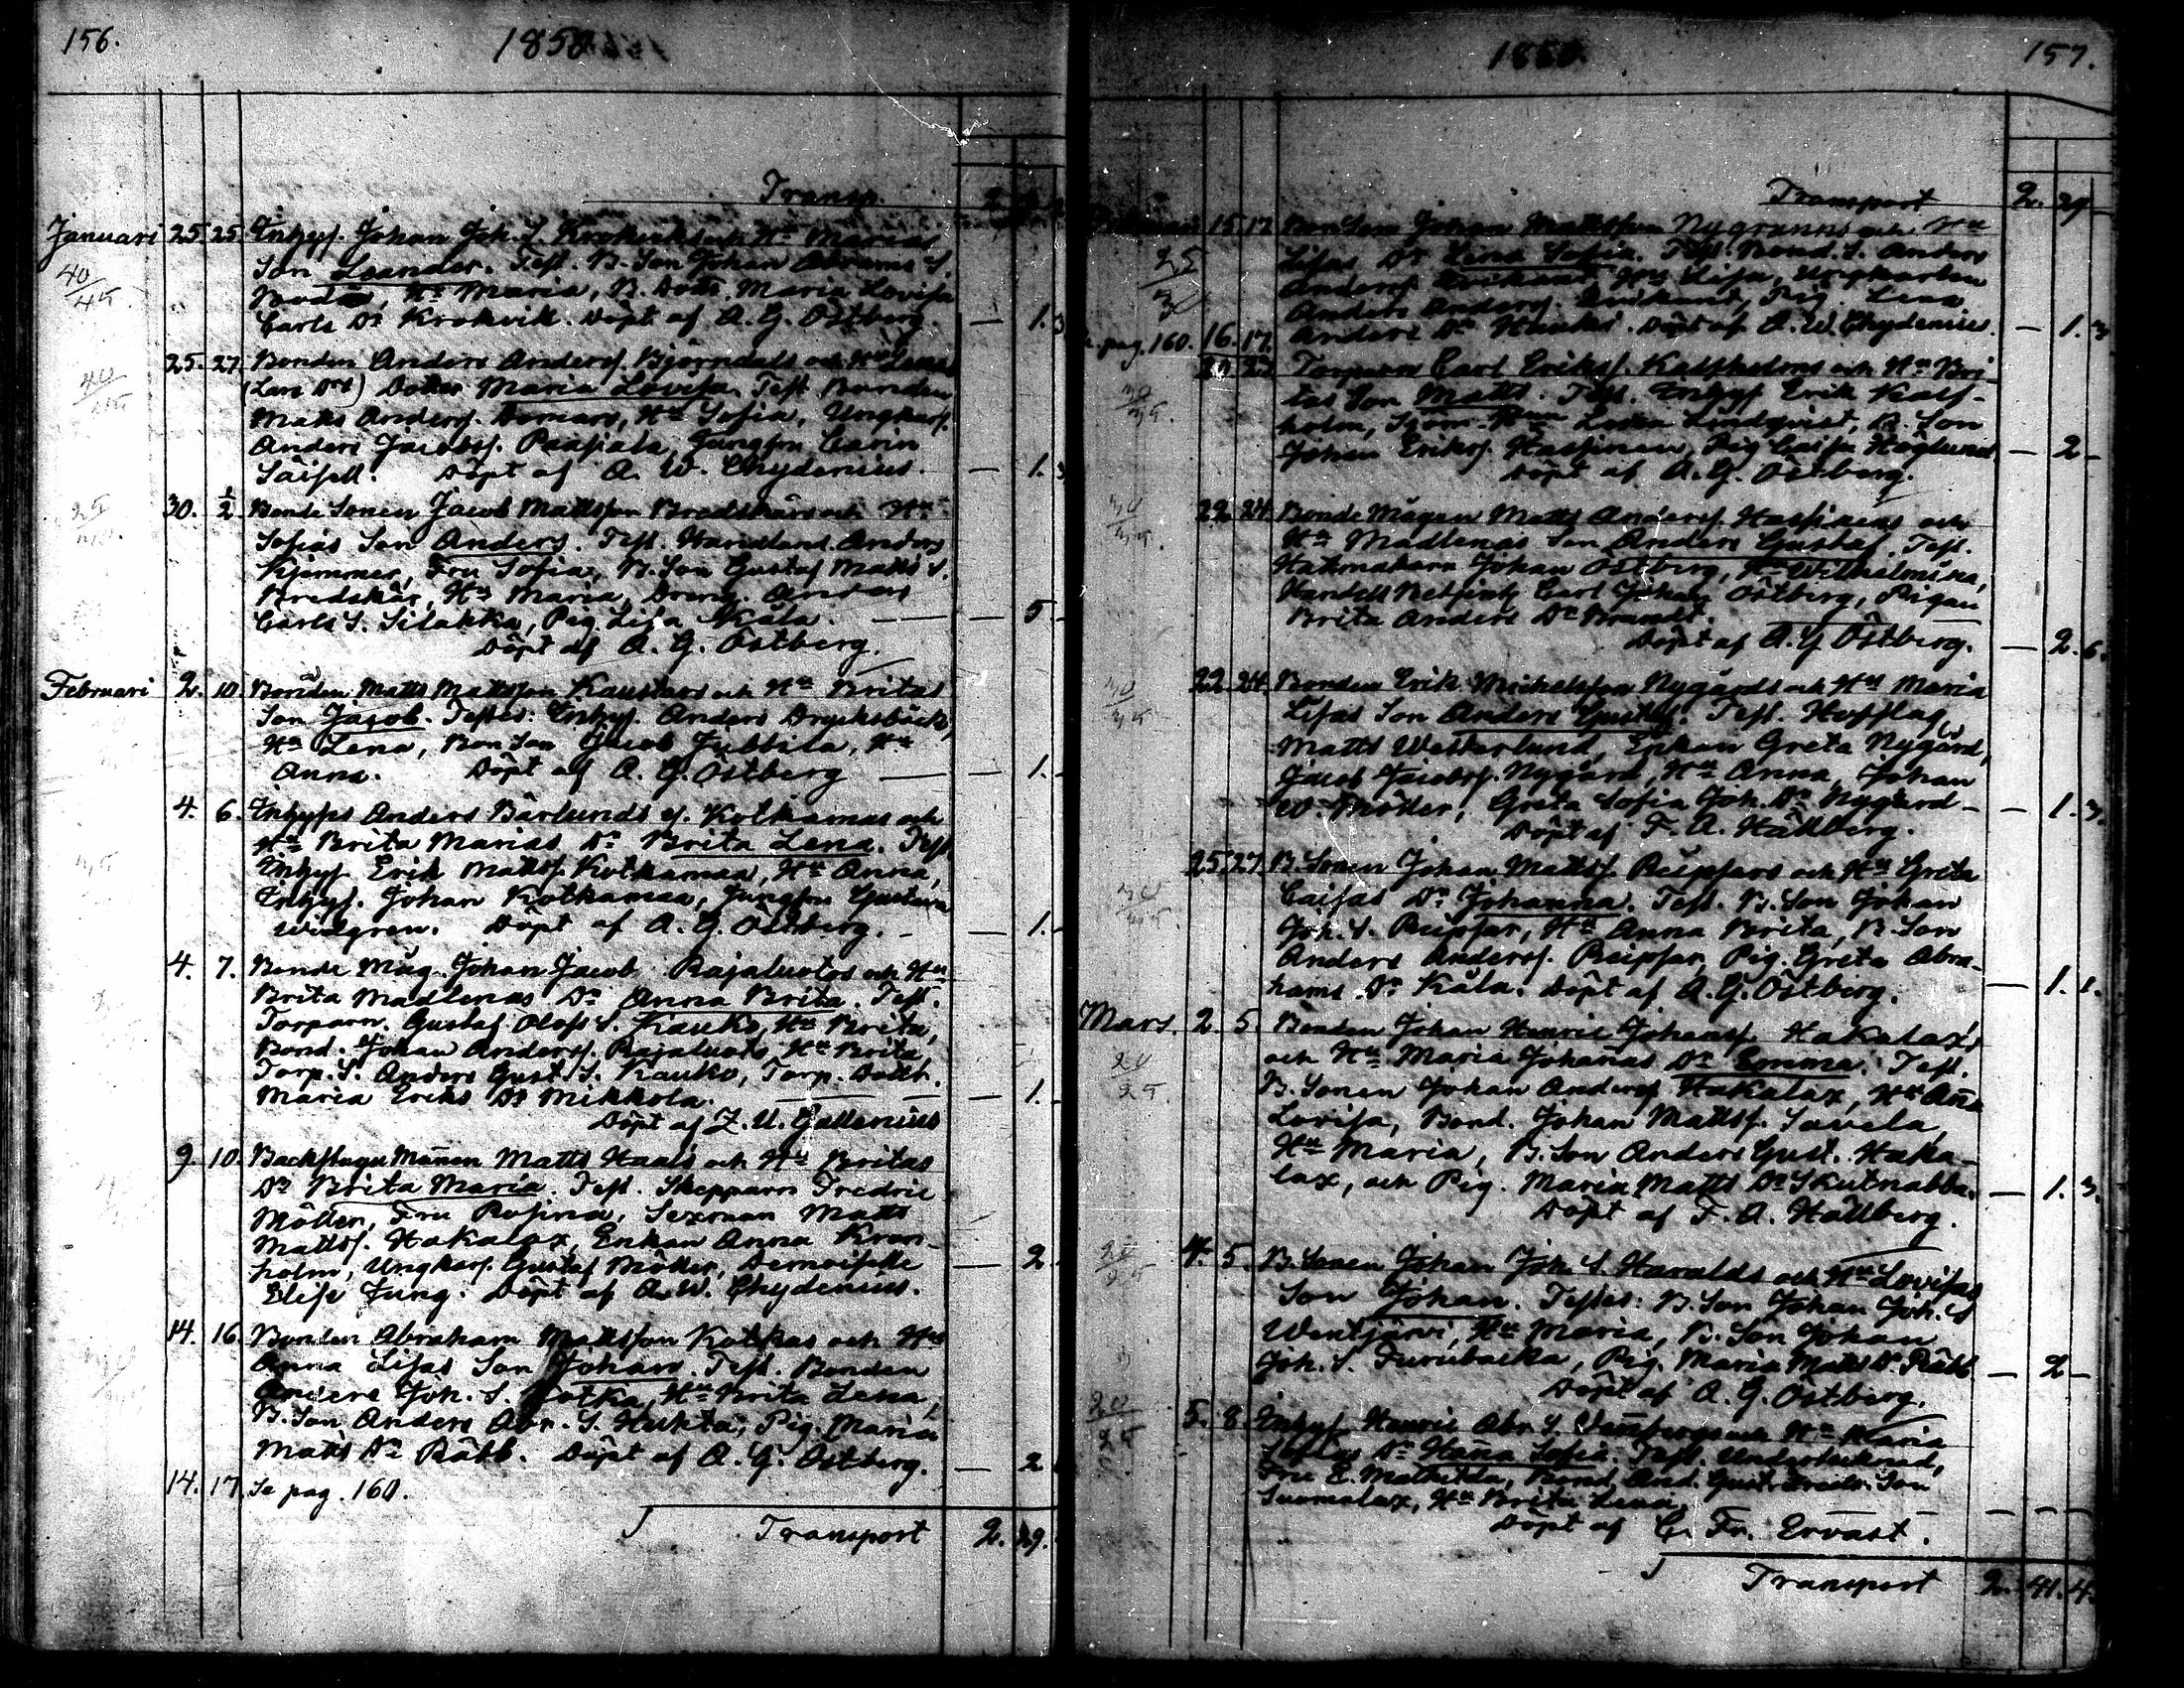 156.
1850
Transp. 2.
Januari 25. 25. Inhys. Johan Joh. S. Krokviks och Hu Marias
40/45 Son Leander. Test. B. Son Johan Abrams S.
Hu Maria, B. Dottr. Maria Lovisa
Carls Dr Krokvik. Döpt af A. G. Östberg. — 1. 3
25. 27. Bonden Anders Anderss. Björndals och Hu Lenas
40 (Lars Drs) Dotter Maria Lovisa. Test. Bonden
Matts Anderss. Domars, Hu Sofia, Ungkarl.
Anders Jacobss. Jungfru Carin
Döpt af A. W. Chydenius. — 1. 3
30. 1/2 Bonde Sonen Jacob Mattsson Bredskärs och Hu
25 Sofias Son Anders. Test. Handland. Anders
Kjemmer, Fru Sofia, B. Son Gustaf Matts S.
Bredskär, Hu Maria, Dreng. Anders
Carls S. Silakka, Pig. Lisa Kåla. — — 5
Döpt af A. G. Östberg.
Februari 2. 10. Bonden Matts Mattsson Kaustars och Hu Britas
Son Jacob. Testes: Inhys. Anders Drycksbäck,
Hu Lena, Bon Son Jacob Jubbila, Hu
Anna. Döpt af A. G. Östberg — — 1.
4. 6. Inhyss Anders Bärlunds ej. Kotkamas och
Hu Brita Marias Dr Brita Lena. Test
Inhys. Erik Matts. Kotkamaa, Hu Anna,
Inhys. Johan Kotkamaa, Jungfru Gustava
Widgren. Döpt af A. G. Östberg. — 1.
4. 7. Bonde Måg. Johan Jacob Rajaluotos och Hu
Brita Madlenas Dr Anna Brita. Test.
Torparn. Gustaf Olofs S. Kauko, Hu Brita,
Bond. Johan Anderss. Rajaluoto Hu Brita,
Torp. S. Anders Gust. S. Kauko, Torp. Dottr.
Maria Eriks Dr Mikkola. — — 1.
Döpt af Z. U. Gallenius
9. 10. Backstugu Manen Matts Haals och Hu Britas
Dr Brita Maria. Test. Skepparn Fredric
Möller, Fru Rosina, Sexman Matts
Mattss. Hakalax, Enkan Anna Kron-
holm, Ungkarl. Gustaf Möller, Demoiselle — 2.
Elise Jung. Döpt af A. W. Chydenius.
14. 16. Bonden Abraham Mattsson Kotkas och Hu
Anna Lisas Son Johan. Test. Bonden
Anders Joh. S. Kotka, Hu Brita Lena,
B. Son Anders Abr. S. Huhta, Pig. Maria
Matts Dr Räbb. Döpt af A. G. Östberg. — 2
14. 17. Se pag. 160.
Transport 2. 29.
1850.
157.
Transport 2. 29 —
15 17 Bon Son Johan Mattsson Nygranns och Hu
25/30 Lisas Dr Lena Sofia. Test. Bond. S. Anders
Anderss. Hu Lisa, Ungkarlen
Anders Anderss. Pig. Lena
pag. 160. 16. 17. Anders Dr Hauks. Döpt af A. W. Chydenius. — 1. 3
20 22 Torparn Carl Erikss. Kalfholms och Hu Bri-
30/35. tas Son Matts. Test. Inhys Erik Kalf-
holm, Lena Lindqvist, B. Son
Johan Erikss. Hassinen, Pig Caisa Höglund — 2 —
Döpt af A. G. Östberg.
22 24 Bonde Mågen Matts Anderss. Hassinens och
Hu Madlenas Son Anders Gustaf. Test.
Hattmakarn Johan Östberg, Hu Wilhelmina,
Handels Betjent Carl Johan Östberg, Pigan
Brita Anders Dr Brandt.
Döpt af A. G. Östberg. — 2. 6.
22 24 Bonden Erik Michelsson Nygårds och Hu Maria
Lisas Son Anders Gustaf. Test.
Matts Westerlund, Enkan Greta Nygård,
Jacob Jacobss. Nygård, Hu Anna, Johan
W. Möller, Greta Sofia Joh. Dr Nygård — — 1. 3.
Döpt af F. A. Hällberg.
25 27 B. Sonen Johan Mattss. Reipsars och Hu Greta
Caisas Dr Johanna. Test. B. Son Johan
Joh. S. Reipsar, Hu Anna Brita, B. Son
Anders Anderss. Reipsar, Pig. Greta Abra-
hams Dr Kåla. Döpt af A. G. Östberg. — 1. 1.
Mars. 2. 5. Bonden Johan Henric Johanss. Hakalax's
20/25. och Hu Maria Johanas Dr Emma. Test.
B. Sonen Johan Anderss Hakalax, Hu Aña
Lovisa, Bond. Johan Mattss. Savela,
Hu Maria, B. Son Anders Gust. Haka-
lax, och Pig. Maria Matts Dr Skutnabba. — 1. 3.
Döpt af F. A. Hällberg.
20/25 4. 5. B. Sonen Johan Joh. S. Haralds och Hu Lovisas
Son Johan. Testes: B. Son Johan Joh. S
Wentjärvi, Hu Maria, B. Son Johan
Joh. S. Furubacka, Pig. Maria Matts Dr Räbb — 2 —
Döpt af A. G. Östberg.
20/25 5. 8. Inhys. Henric Abr. S. och Hu Maria
Sofias Dr Haña Sofia. Test. Undertecknad,
Fru E. Mathilda, Bond. And. Gust. Fredr. Son
Suomalax, Hu Brita Lena. — — —
Döpt af C. Fr. Ervast.
Transport 2. 41. 4.